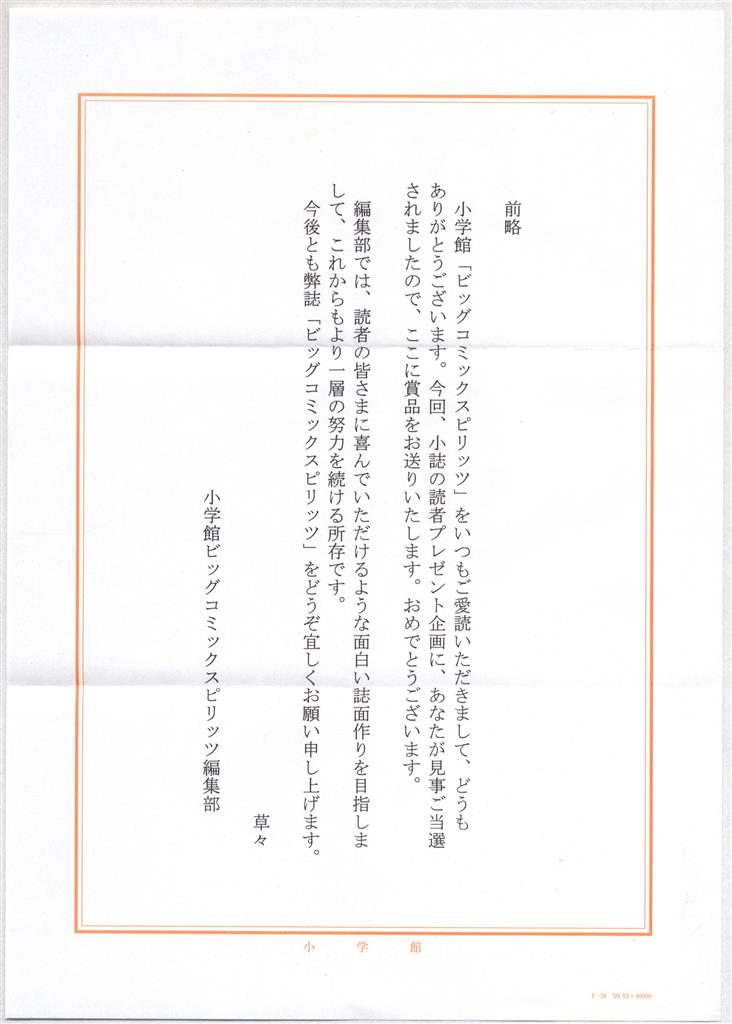 前略
小学館「ビッグコミックスピリッツ」をいつもご愛読いただきまして、どうも
ありがとうございます。今回、小誌の読者プレゼント企画に、あなたが見事ご当選
されましたので、ここに賞品をお送りいたします。おめでとうございます。
編集部では、読者の皆さまに喜んでいただけるような面白い誌面作りを目指しま
して、これからもより一層の努力を続ける所存です。
今後とも弊誌「ビッグコミックスピリッツ」をどうぞ宜しくお願い申し上げます。
草々
小学館ビッグコミックスピリッツ編集部
小学館
F-28 '09.03×40000